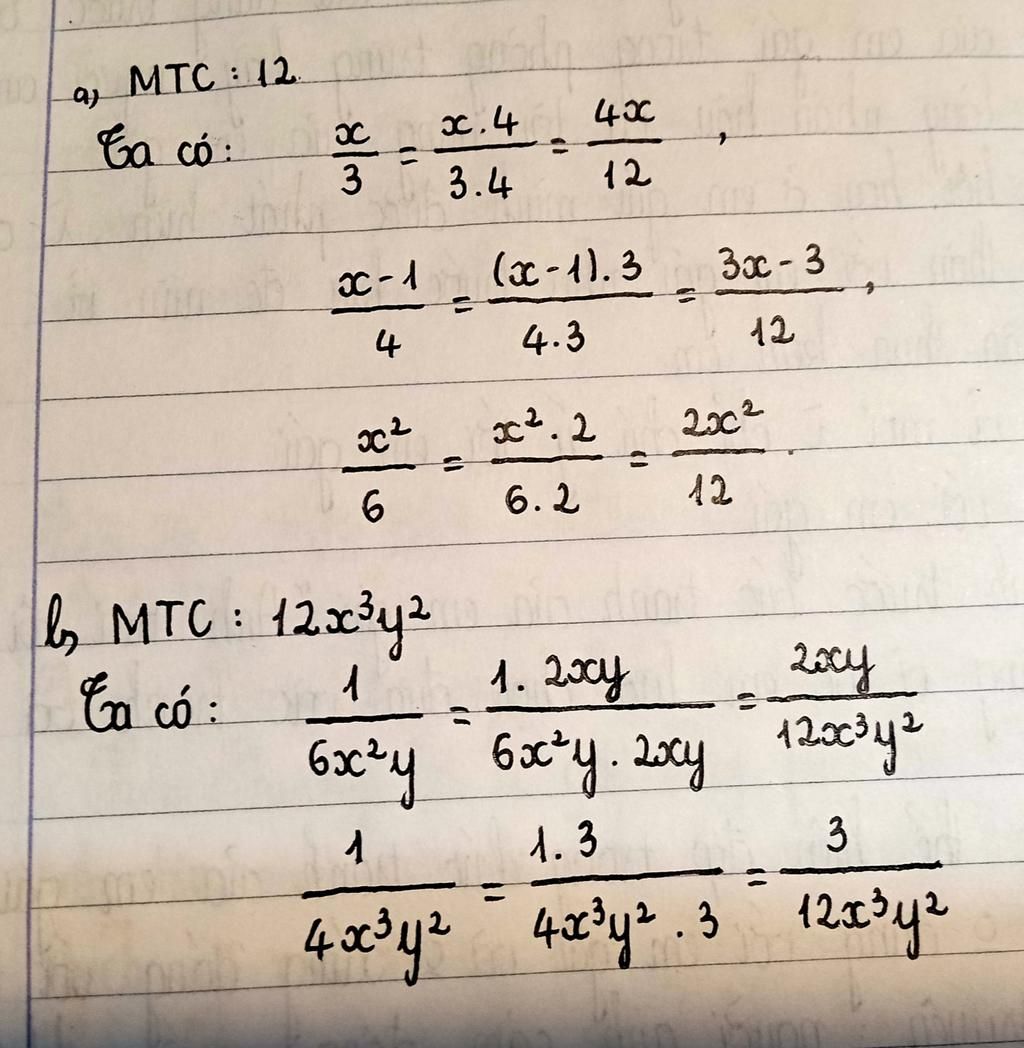 a, MTC : 12.
Ta có: x/3 = x.4/3.4 = 4x/12 ,
x-1/4 = (x-1).3/4.3 = 3x-3/12 ,
x²/6 = x².2/6.2 = 2x²/12 .
b, MTC : 12x³y²
Ta có: 1/6x²y = 1.2xy/6x²y.2xy = 2xy/12x³y²
1/4x³y² = 1.3/4x³y².3 = 3/12x³y²